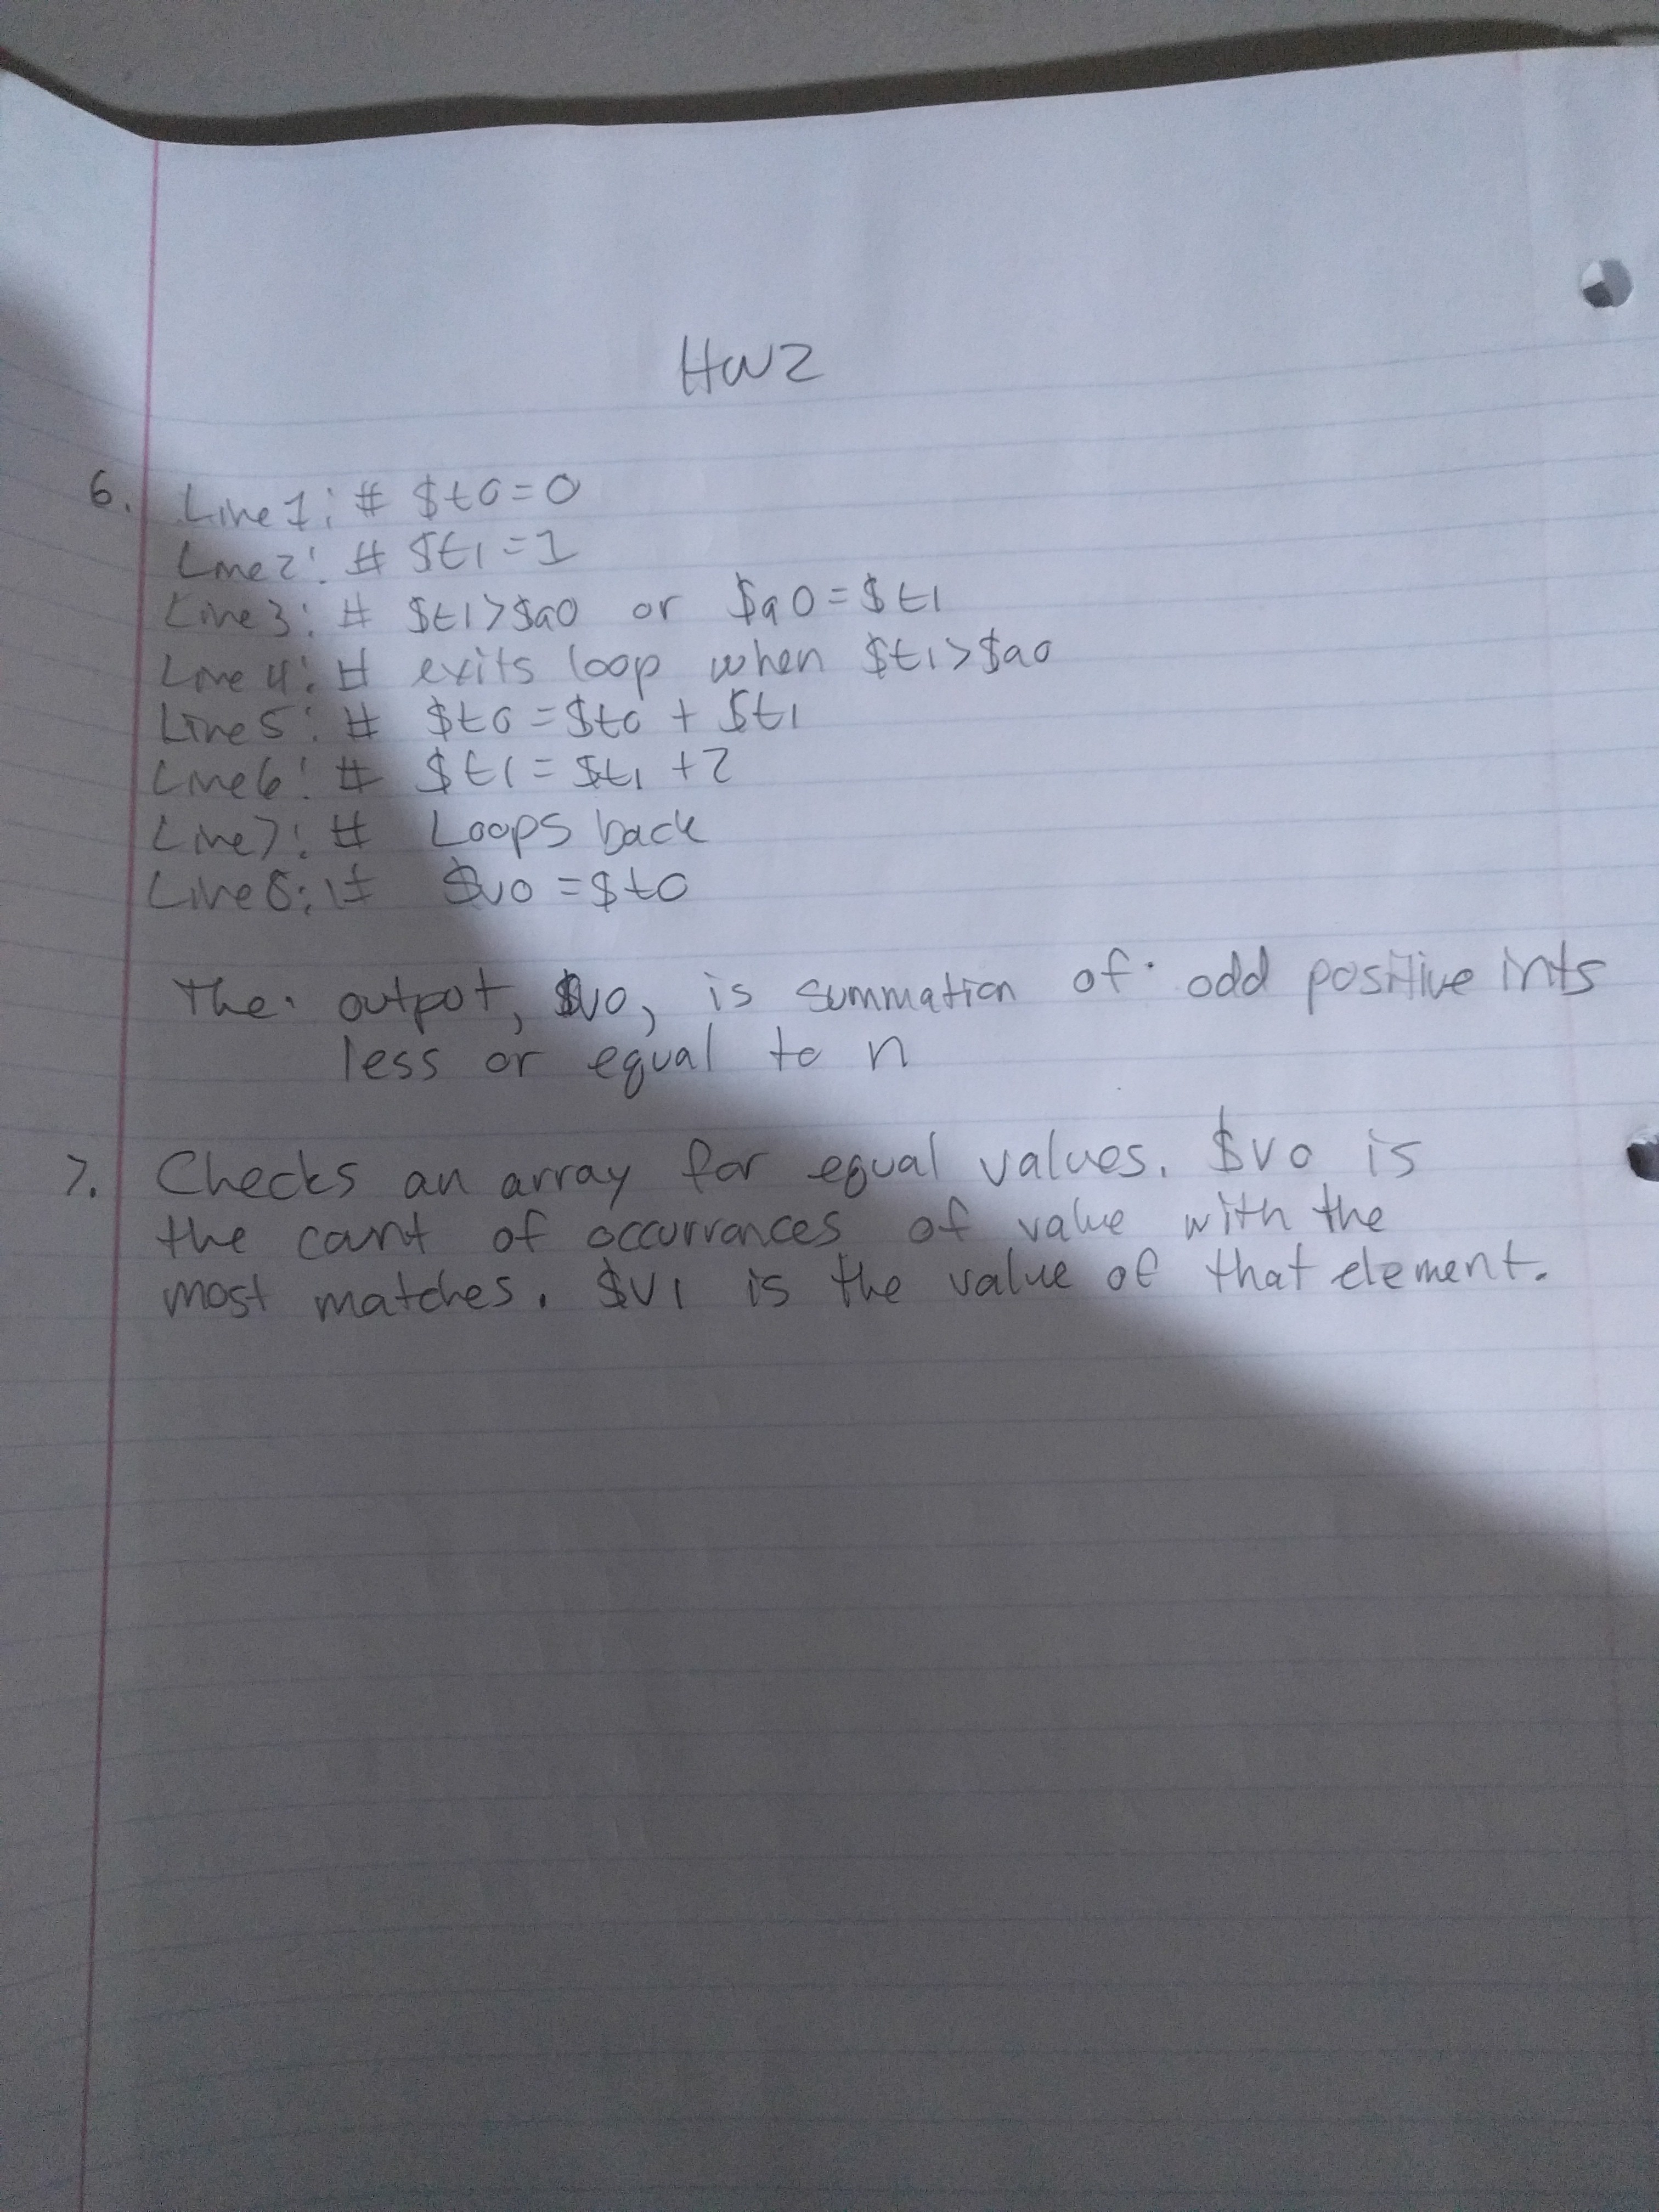 HW2
6. Line 1: # $t0=0
Line 2: # $t1=1
Line 3: # $t1>$a0 or $a0=$t1
Line 4: # exits loop when $t1>$a0
Line 5: # $t0=$t0 + $t1
Line 6: # $t1=$t1+2
Line 7: # Loops back
Line 8: # $v0=$t0
The output, $v0, is summation of odd positive ints
less or equal to n
7. Checks an array for equal values. $v0 is
the count of occurrances of value with the
most matches. $v1 is the value of that element.